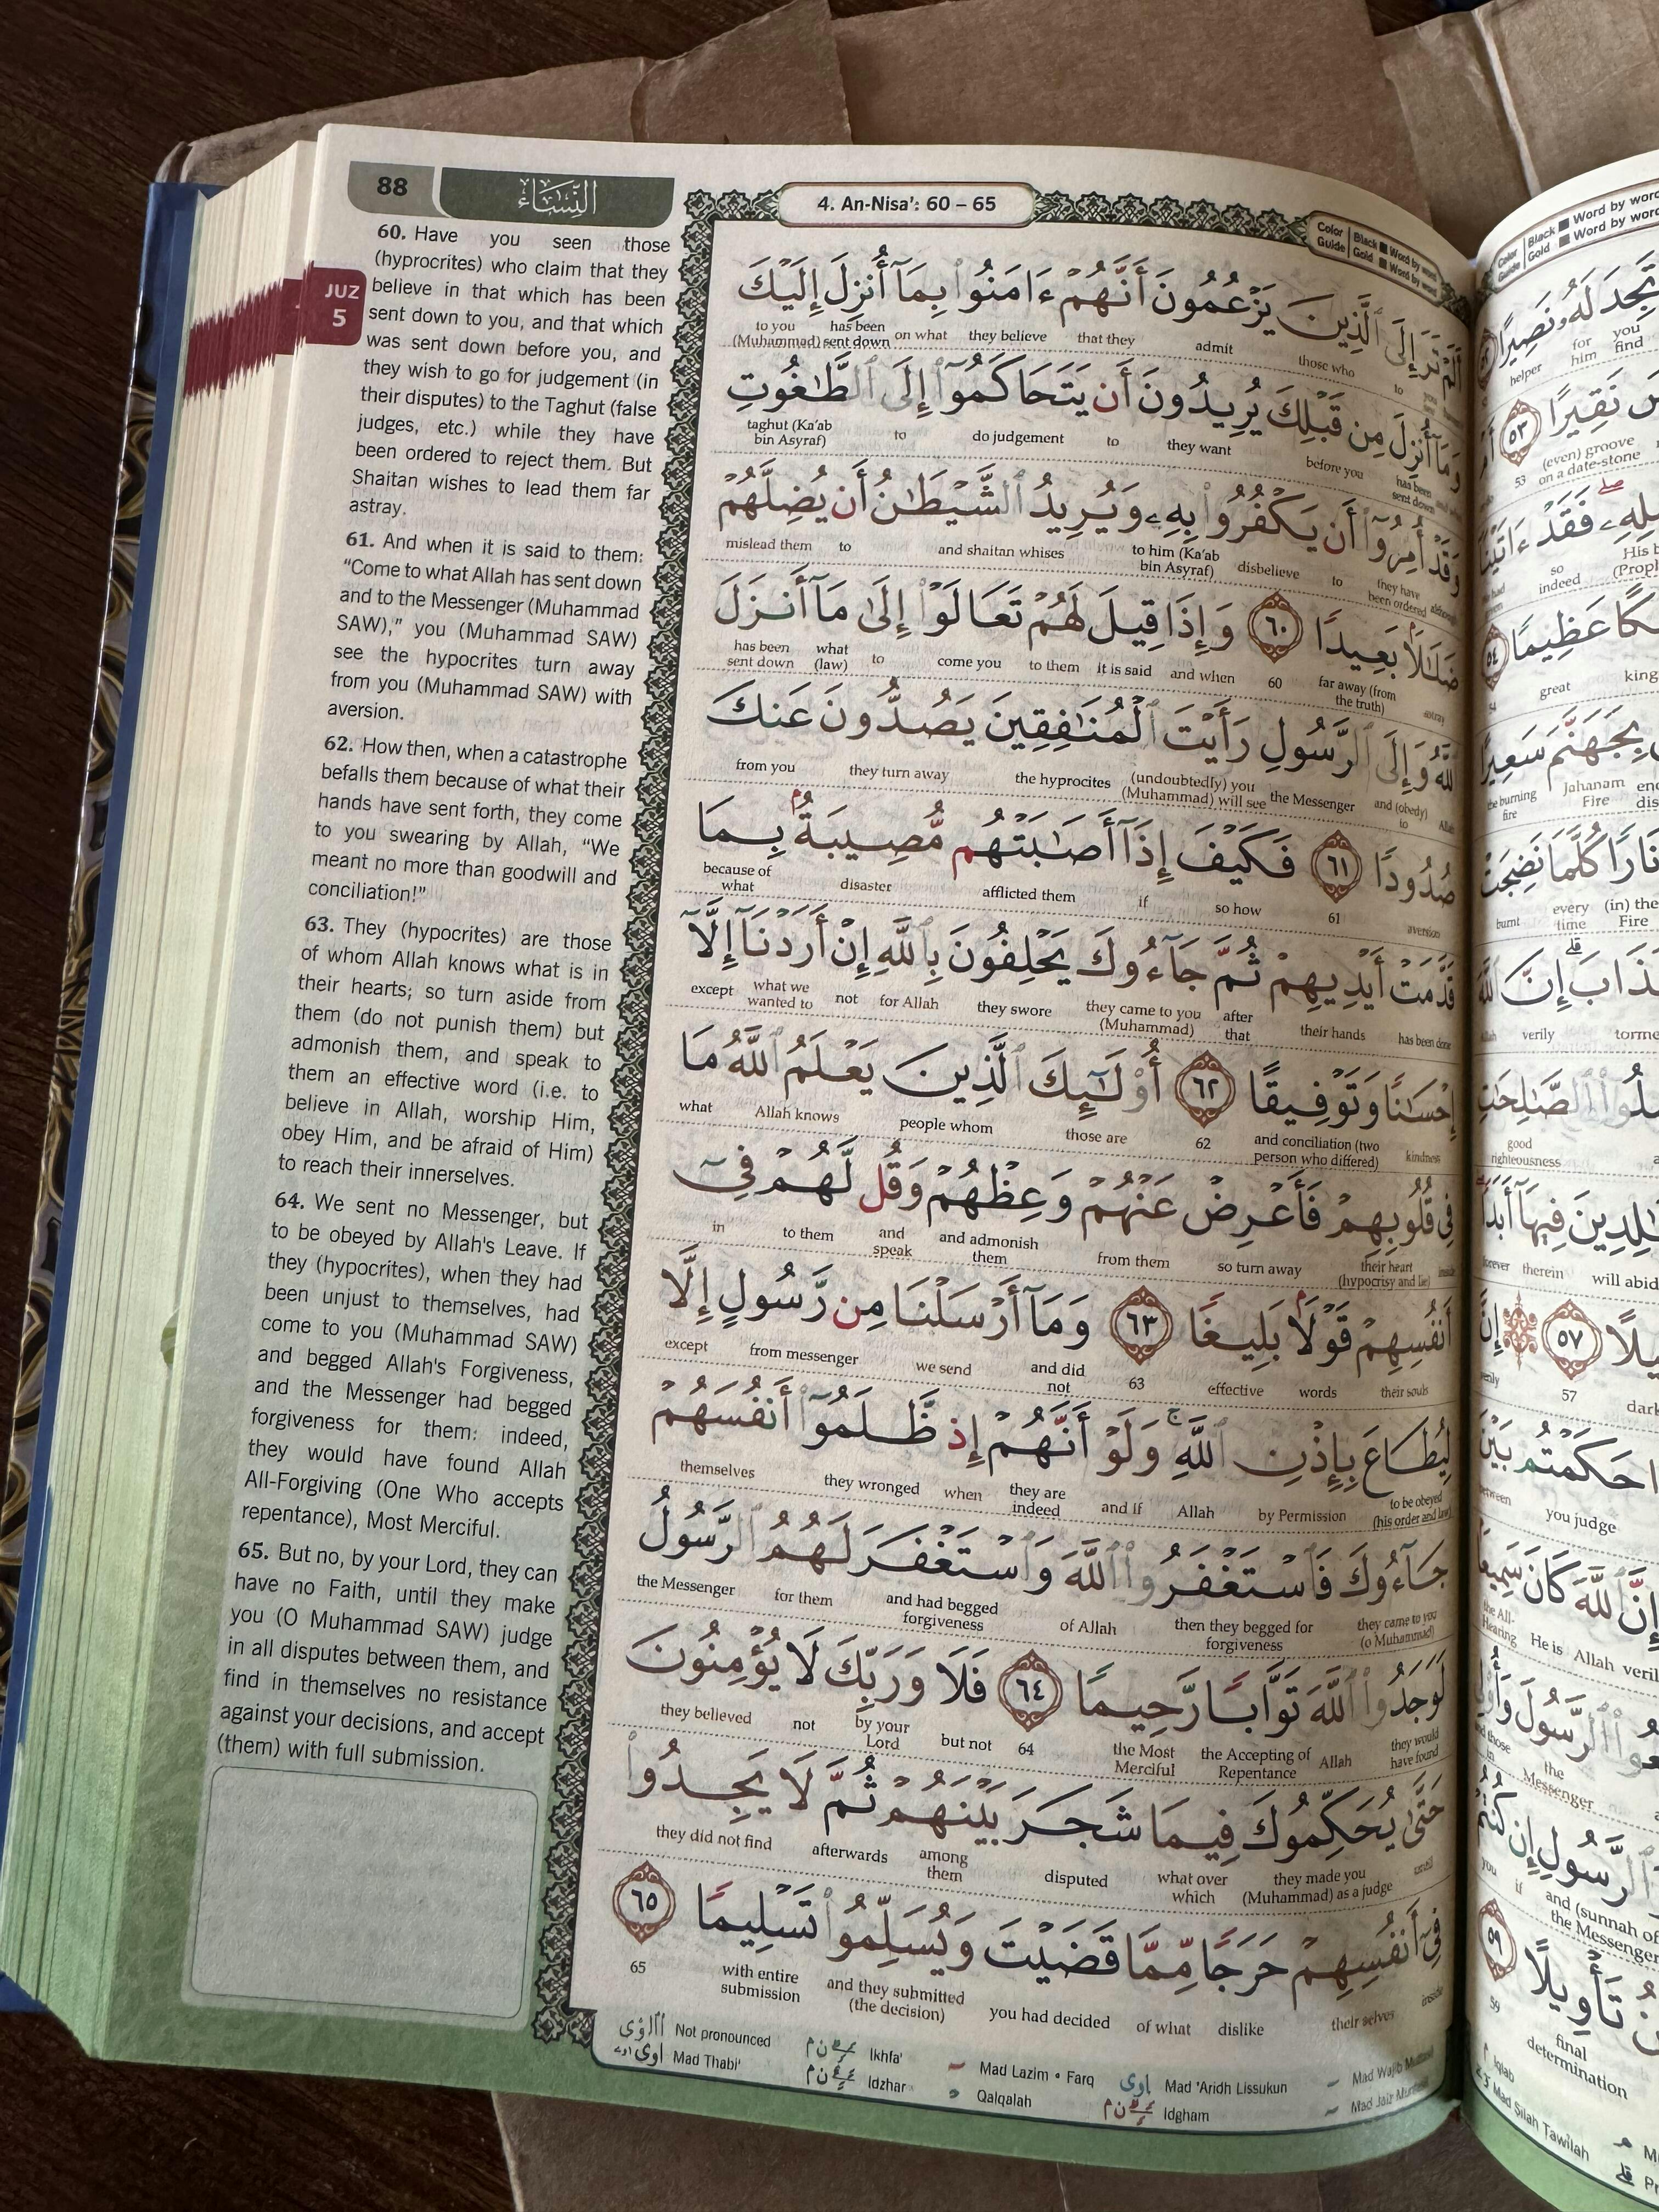 88
النِّسَاء
4. An-Nisa': 60 – 65
Color Guide
Black ■ Word by word
Gold ■ Word by word
JUZ
5
60. Have you seen those
(hyprocrites) who claim that they
believe in that which has been
sent down to you, and that which
was sent down before you, and
they wish to go for judgement (in
their disputes) to the Taghut (false
judges, etc.) while they have
been ordered to reject them. But
Shaitan wishes to lead them far
astray.
61. And when it is said to them:
“Come to what Allah has sent down
and to the Messenger (Muhammad
SAW),” you (Muhammad SAW)
see the hypocrites turn away
from you (Muhammad SAW) with
aversion.
62. How then, when a catastrophe
befalls them because of what their
hands have sent forth, they come
to you swearing by Allah, “We
meant no more than goodwill and
conciliation!”
63. They (hypocrites) are those
of whom Allah knows what is in
their hearts; so turn aside from
them (do not punish them) but
admonish them, and speak to
them an effective word (i.e. to
believe in Allah, worship Him,
obey Him, and be afraid of Him)
to reach their innerselves.
64. We sent no Messenger, but
to be obeyed by Allah's Leave. If
they (hypocrites), when they had
been unjust to themselves, had
come to you (Muhammad SAW)
and begged Allah's Forgiveness,
and the Messenger had begged
forgiveness for them: indeed,
they would have found Allah
All-Forgiving (One Who accepts
repentance), Most Merciful.
65. But no, by your Lord, they can
have no Faith, until they make
you (O Muhammad SAW) judge
in all disputes between them, and
find in themselves no resistance
against your decisions, and accept
(them) with full submission.
أَلَمْ تَرَ إِلَى ٱلَّذِينَ يَزْعُمُونَ أَنَّهُمْ ءَامَنُوا۟ بِمَآ أُنزِلَ إِلَيْكَ
to you (Muhammad) has been sent down on what they believe that they admit those who to you
وَمَآ أُنزِلَ مِن قَبْلِكَ يُرِيدُونَ أَن يَتَحَاكَمُوٓا۟ إِلَى ٱلطَّٰغُوتِ
taghut (Ka'ab bin Asyraf) to do judgement to they want before you has been sent down
وَقَدْ أُمِرُوٓا۟ أَن يَكْفُرُوا۟ بِهِۦ وَيُرِيدُ ٱلشَّيْطَٰنُ أَن يُضِلَّهُمْ
mislead them to and shaitan whises to him (Ka'ab bin Asyraf) disbelieve to they have been ordered although
ضَلَٰلًۢا بَعِيدًا ٦٠ وَإِذَا قِيلَ لَهُمْ تَعَالَوْا۟ إِلَىٰ مَآ أَنزَلَ
has been sent down what (law) to come you to them it is said and when 60 far away (from the truth) astray
ٱللَّهُ وَإِلَى ٱلرَّسُولِ رَأَيْتَ ٱلْمُنَٰفِقِينَ يَصُدُّونَ عَنكَ
from you they turn away the hyprocites (undoubtedly) you (Muhammad) will see the Messenger and (obedy) to Allah
صُدُودًا ٦١ فَكَيْفَ إِذَآ أَصَٰبَتْهُم مُّصِيبَةٌۢ بِمَا
because of what disaster afflicted them if so how 61 aversion
قَدَّمَتْ أَيْدِيهِمْ ثُمَّ جَآءُوكَ يَحْلِفُونَ بِٱللَّهِ إِنْ أَرَدْنَآ إِلَّآ
except what we wanted to not for Allah they swore they came to you (Muhammad) after that their hands has been done
إِحْسَٰنًا وَتَوْفِيقًا ٦٢ أُو۟لَٰٓئِكَ ٱلَّذِينَ يَعْلَمُ ٱللَّهُ مَا
what Allah knows people whom those are 62 and conciliation (two person who differed) kindness
فِى قُلُوبِهِمْ فَأَعْرِضْ عَنْهُمْ وَعِظْهُمْ وَقُل لَّهُمْ فِىٓ
in to them and speak and admonish them from them so turn away their heart (hypocrisy and lie) inside
أَنفُسِهِمْ قَوْلًۢا بَلِيغًا ٦٣ وَمَآ أَرْسَلْنَا مِن رَّسُولٍ إِلَّا
except from messenger we send and did not 63 effective words their souls
لِيُطَاعَ بِإِذْنِ ٱللَّهِ ۚ وَلَوْ أَنَّهُمْ إِذ ظَّلَمُوٓا۟ أَنفُسَهُمْ
themselves they wronged when they are indeed and if Allah by Permission to be obeyed (his order and law)
جَآءُوكَ فَٱسْتَغْفَرُوا۟ ٱللَّهَ وَٱسْتَغْفَرَ لَهُمُ ٱلرَّسُولُ
the Messenger for them and had begged forgiveness of Allah then they begged for forgiveness they came to you (o Muhammad)
لَوَجَدُوا۟ ٱللَّهَ تَوَّابًا رَّحِيمًا ٦٤ فَلَا وَرَبِّكَ لَا يُؤْمِنُونَ
they believed not by your Lord but not 64 the Most Merciful the Accepting of Repentance Allah they would have found
حَتَّىٰ يُحَكِّمُوكَ فِيمَا شَجَرَ بَيْنَهُمْ ثُمَّ لَا يَجِدُوا۟
they did not find afterwards among them disputed what over which they made you (Muhammad) as a judge until
فِىٓ أَنفُسِهِمْ حَرَجًا مِّمَّا قَضَيْتَ وَيُسَلِّمُوا۟ تَسْلِيمًا ٦٥
65 with entire submission and they submitted (the decision) you had decided of what dislike their selves inside
Not pronounced Ikhfa' Mad Lazim • Farq Mad 'Aridh Lissukun Mad Wajib Muttasil
Mad Thabi' Idzhar Qalqalah Idgham Mad Jaiz Munfasil
Color Guide
Black ■ Word by word
Gold ■ Word by word
تَجِدَ لَهُۥ نَصِيرًا
helper for him you find
نَقِيرًا ٥٣
53 (even) groove on a date-stone
فَقَدْ ءَاتَيْنَآ
so indeed His
عَظِيمًا ٥٤
great king
بِجَهَنَّمَ سَعِيرًا
the burning fire Jahanam Fire
نَارًا كُلَّمَا نَضِجَتْ
burnt every time (in) the Fire
إِنَّ ٱللَّهَ
verily
ٱلصَّٰلِحَٰتِ
good righteousness
خَٰلِدِينَ فِيهَآ أَبَدًا
forever therein will abid
٥٧ إِنَّ
57 dark
حَكَمْتُم بَيْنَ
between you judge
إِنَّ ٱللَّهَ كَانَ سَمِيعًا
the All-Hearing He is Allah veril
ٱلرَّسُولَ
the Messenger
ٱلرَّسُولِ إِن كُنتُمْ
you if and (sunnah of) the Messenger
تَأْوِيلًا ٥٩
59 final determination
Iqlab
Mad Silah Tawilah